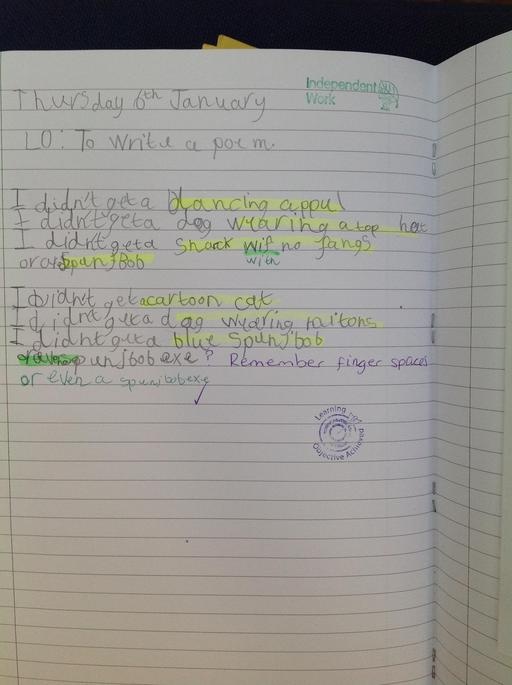 Independent
Work
Thursday 6th January
LO: To write a poem.
I didn't get a dancing appul
I didn't get a dog wyaring a top hat
I didn't get a snack wif no fangs
with
or a Spunjbob
I didn't get a cartoon cat
I didn't get a dog wyaring mitons
I didn't get a blue Spunjbob
spunjbob exe? Remember finger spaces
or even a spunjbobexe
Learning
Objective Achieved